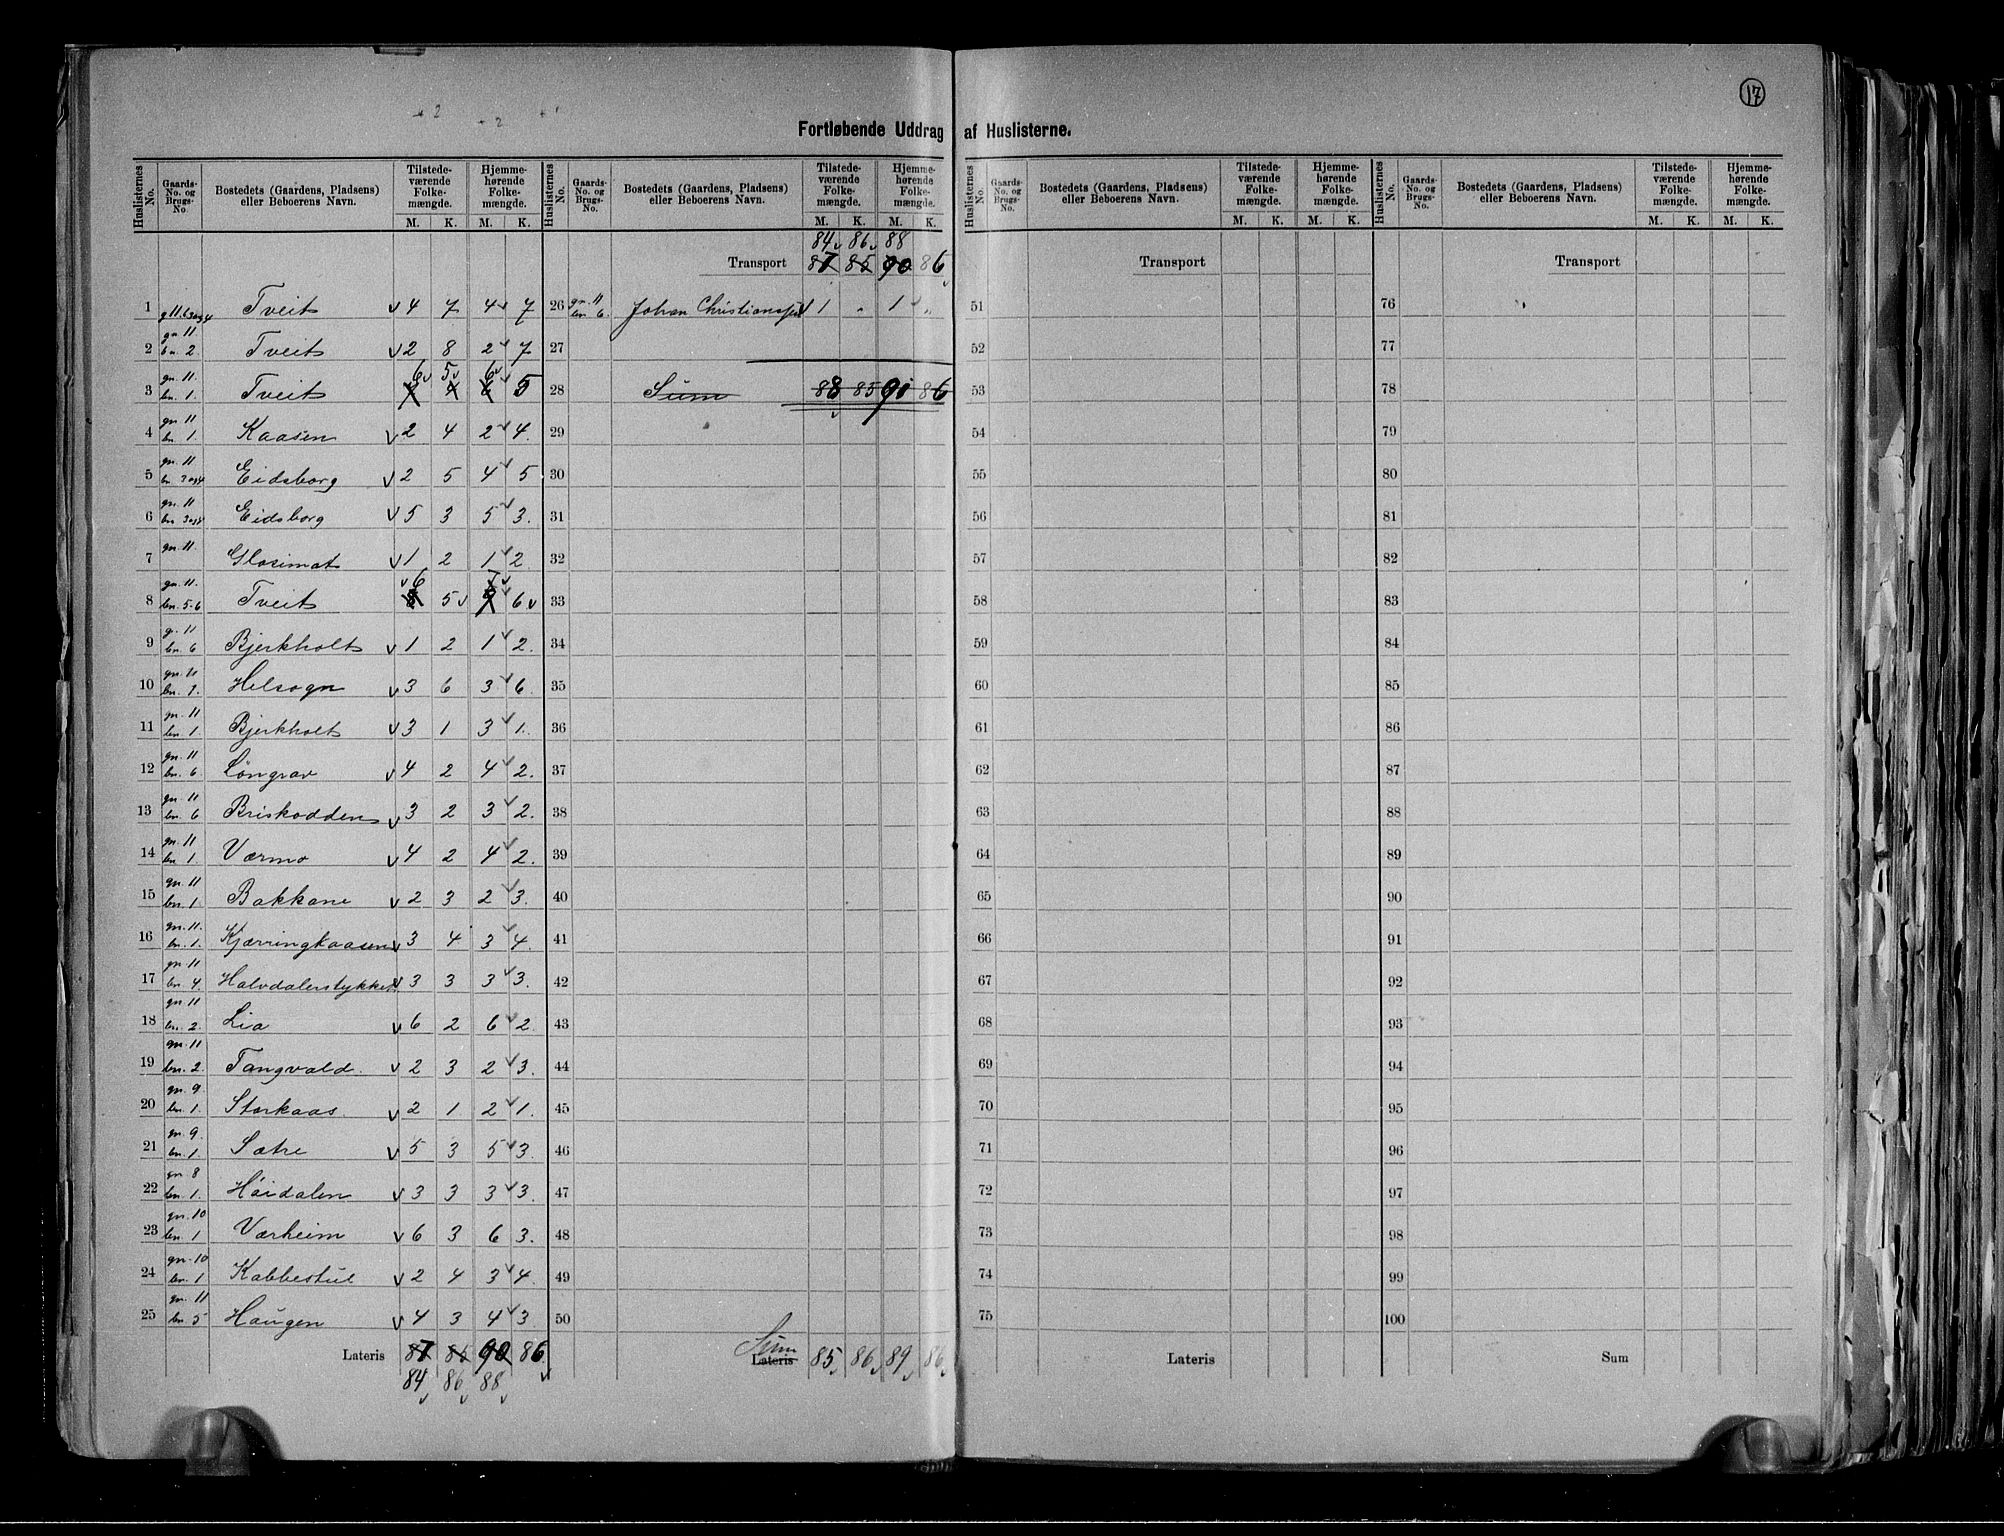 17
+ 2 + 2 +1
Fortløbende Uddrag af Huslisterne.
Huslisternes No. | Gaards-No. og Brugs-No. | Bostedets (Gaardens, Pladsens) eller Beboerens Navn. | Tilstedeværende Folkemængde. M. K. | Hjemmehørende Folkemængde. M. K.
1 g 11. b 3 og 4 Tveit v 4 7 4 v 7
2 gn. 11. bn. 2. Tveit v 2 8 2 v 7
3 gn. 11. bn. 1. Tveit 6 v 5 v 6 v 5
4 gn. 11 bn. 1. Kaasen v 2 4 2 v 4.
5 gn. 11 bn. 3 og 4 Eidsborg v 2 5 4 v 5
6 gn. 11 bn. 3 og 4 Eidsborg v 5 3 5 v 3.
7 gn. 11. Glosimot v 1 2 1 v 2
8 gn. 11. bn. 5-6 Tveit v 6 5 v 7 v 6 v
9 g. 11 bn. 6 Bjerkholt v 1 2 1 v 2.
10 gn. bn. Helsogn v 3 6 3 v 6.
11 gn. 11 bn. 1. Bjerkholt v 3 1 3 v 1.
12 gn. 11 bn. 6. Løngrav v 4 2 4 v 2.
13 gn. 11 bn. 6 Briskodden v 3 2 3 v 2.
14 gn. 11 bn. 1. Værmo v 4 2 4 v 2.
15 gn. 11 bn. 1 Bakkane v 2 3 2 v 3.
16 gn. 11. bn. 1. Kjærringkaasen v 3 4 3 v 4.
17 gn. 11 bn. 4. Halvdalerstykket v 3 3 3 v 3.
18 gn. 11 bn. 2. Lia v 6 2 6 v 2.
19 gn. 11 bn. 2 Tangvald. v 2 3 2 v 3.
20 gn. 9 bn. 1. Storkaas v 2 1 2 v 1.
21 gn. 9. bn. 1. Sætre v 5 3 5 v 3.
22 gn. 8 bn. 1. Høidalen v 3 3 3 v 3.
23 gn. 10 bn. 1 Værheim v 6 3 6 3.
24 gn. 10 bn. 1 Kabbestul v 2 4 3 v 4.
25 gn. 11 bn. 5 Haugen v 4 3 4 v 3.
Lateris 87 85 90 86
84 v 86 v 88 v
Huslisternes No. | Gaards-No. og Brugs-No. | Bostedets (Gaardens, Pladsens) eller Beboerens Navn. | Tilstedeværende Folkemængde. M. K. | Hjemmehørende Folkemængde. M. K.
84 v 86 v 88
Transport 87 85 90 86
26 gn. 11 bn. 6. Johan Christianssen v 1 „ 1 v „
27
28 Sum 88 85 91 86
29
30
31
32
33
34
35
36
37
38
39
40
41
42
43
44
45
46
47
48
49
50
Sum
Lateris 85 v 86 v 89 v 86
Huslisternes No. | Gaards-No. og Brugs-No. | Bostedets (Gaardens, Pladsens) eller Beboerens Navn. | Tilstedeværende Folkemængde. M. K. | Hjemmehørende Folkemængde. M. K.
Transport
51
52
53
54
55
56
57
58
59
60
61
62
63
64
65
66
67
68
69
70
71
72
73
74
75
Lateris
Huslisternes No. | Gaards-No. og Brugs-No. | Bostedets (Gaardens, Pladsens) eller Beboerens Navn. | Tilstedeværende Folkemængde. M. K. | Hjemmehørende Folkemængde. M. K.
Transport
76
77
78
79
80
81
82
83
84
85
86
87
88
89
90
91
92
93
94
95
96
97
98
99
100
Sum